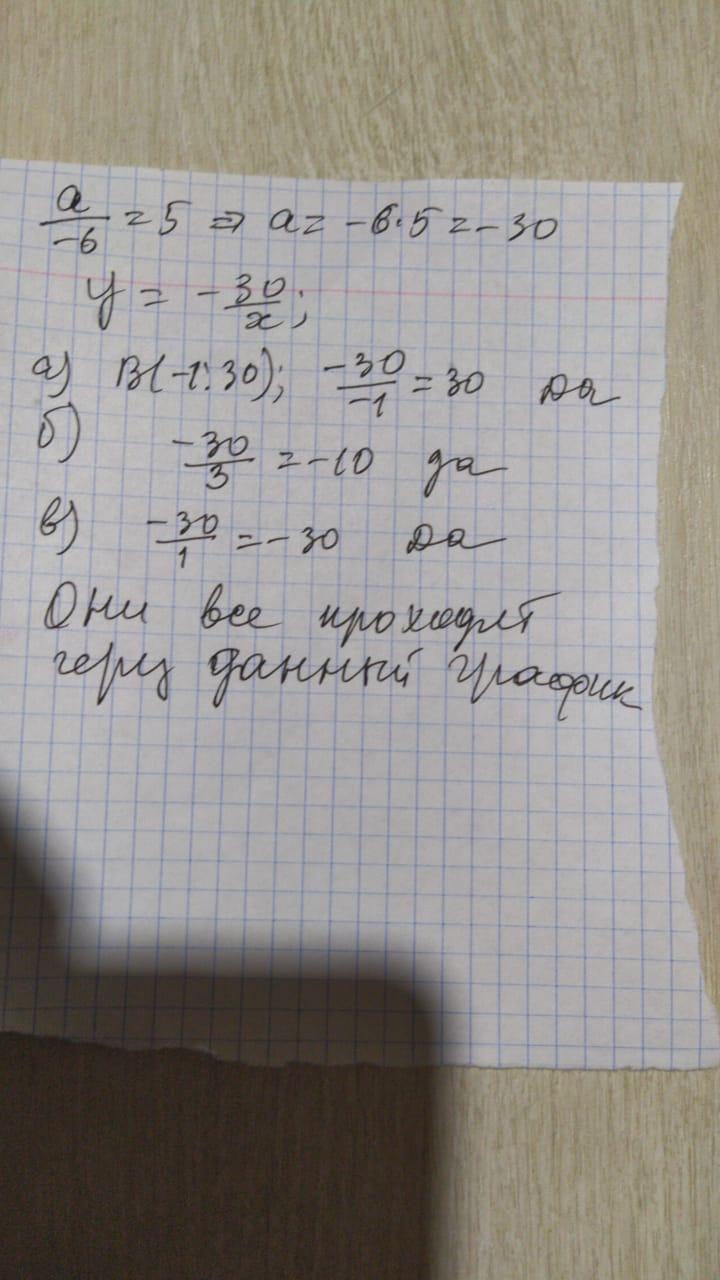 a/-6 = 5 ⇒ a = -6·5 = -30
y = -30/x;
а) B(-1; 30); -30/-1 = 30 Да
б) -30/3 = -10 да
в) -30/1 = -30 Да
Они все проходят
через данный график